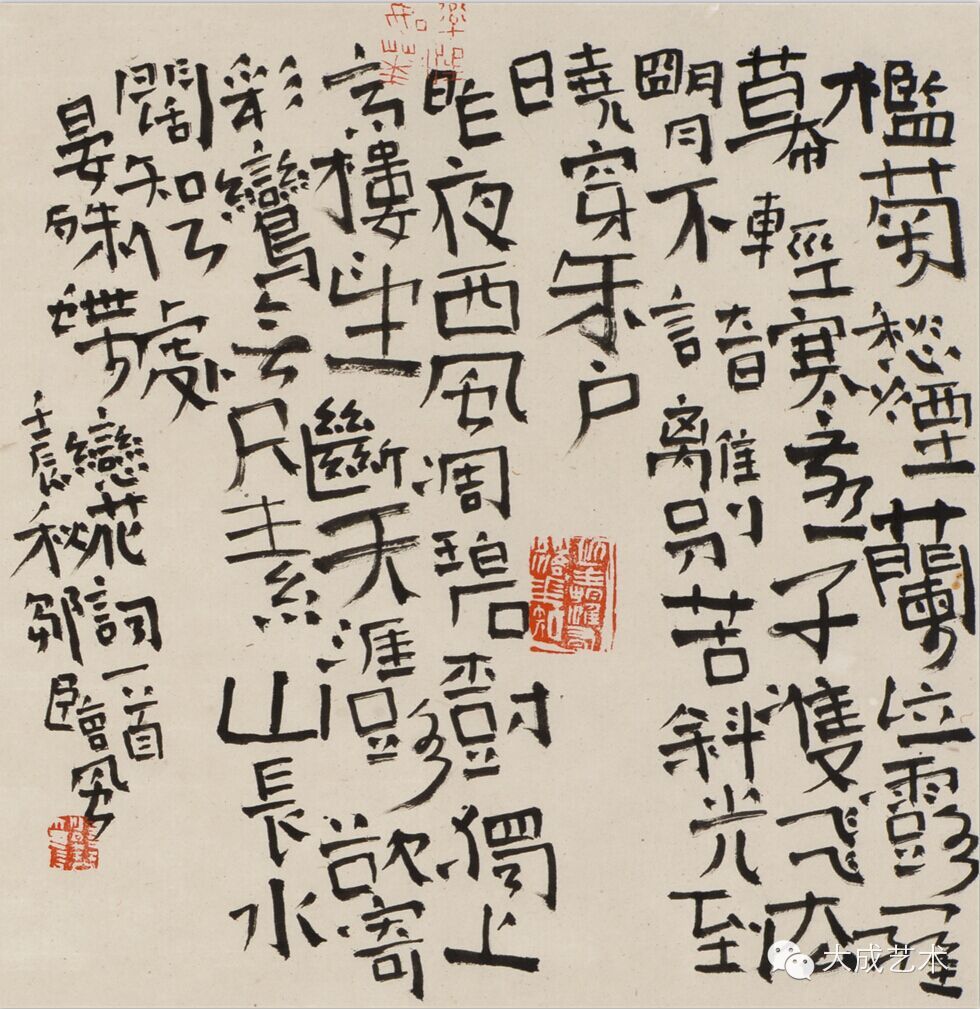 檻菊愁煙蘭泣露羅
幕輕寒燕子雙飛去
朙月不諳離別苦斜光到
曉穿朱戶
昨夜西風凋碧樹獨上
高樓望斷天涯路欲寄
彩鸞尺素山長水
闊知處
晏殊蝶
戀花詞一首
壬辰秋鄒臨風
大成艺术